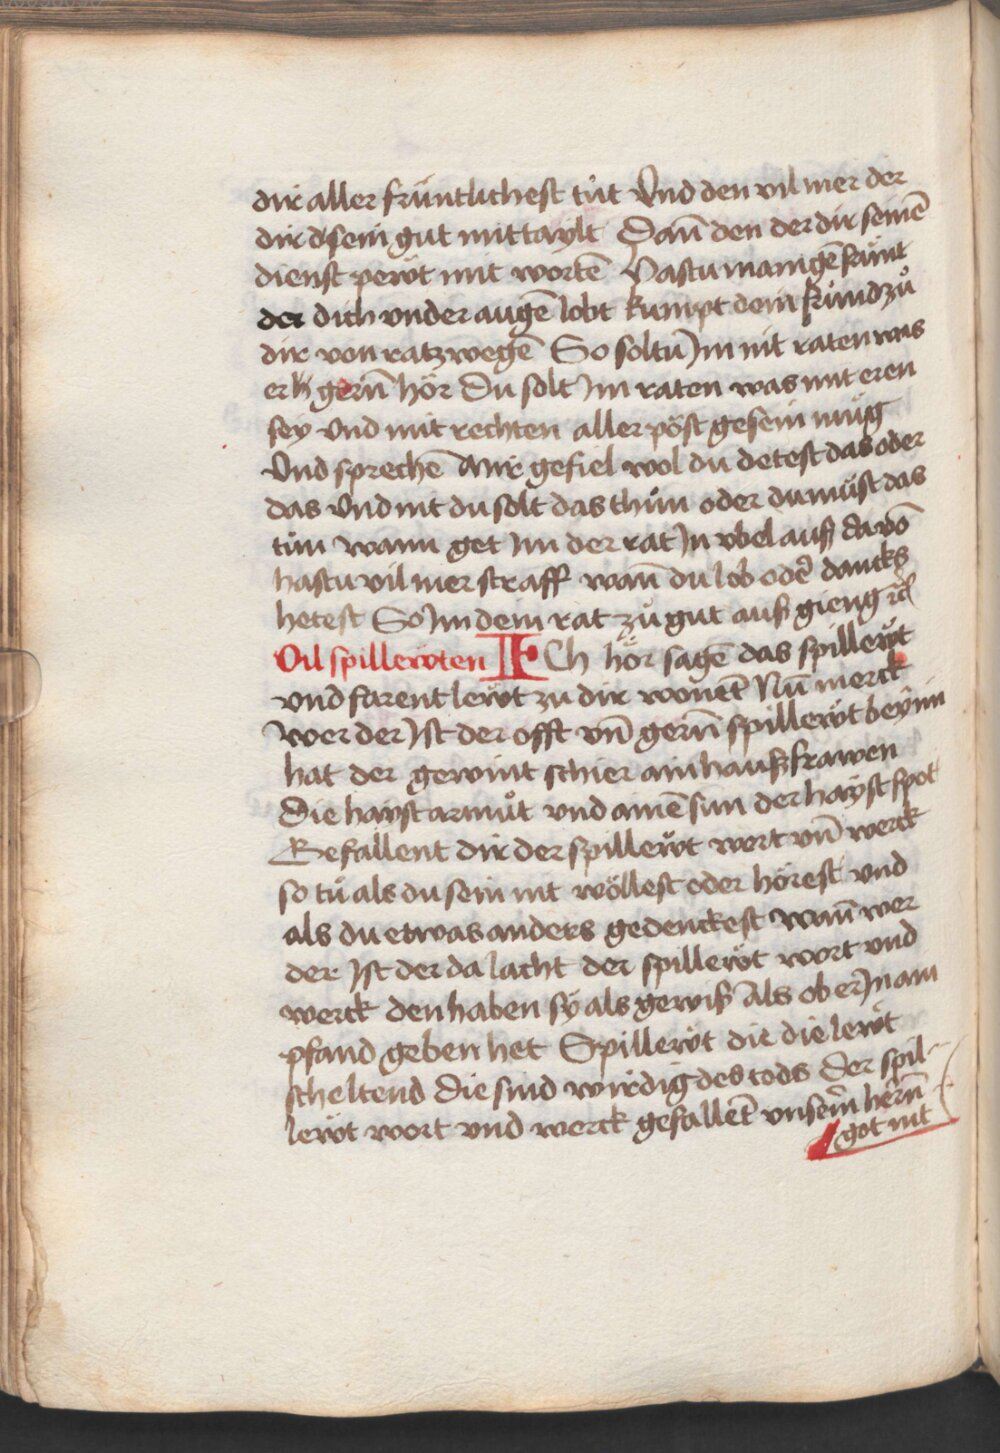 dir aller früntlichest tůt Vnd den vil mer der
dir sein gut mittaylt Dañ den der dir seinē
dienst pewt mit wortē Hastu manigē frünt
der dich vnder augē lobt kumpt dein fründ zů
dir von ratz wegē So soltu Jm nit raten was
er gerñ hör Du solt Jm raten was mit eren
sey Vnd mit rechten aller pöst gesein müg
Vnd sprechē Mir gefiel wol du detest das oder
das Vnd nit du solt das thůn oder du můst das
tůn Wann get Jm der rat Jn vbel auß da võ
hastu vil mer straff wañ du lob odeʳ dancks
hetest So Jm dein rat zů gut auß gieng
Vil spillewten ICh hör sagē das spillewt
vnd farent lewt zu dir wonēt Nū merck
Wer der Jst der offt vñ gerñ spillewt bey im
hat der gewint schier ain haußfrawen
Die hayst armůt vnd ainē sun der hayst spot
Gefallent dir der spillewt wort vñ werck
so tů als du sein nit wöllest oder hörest vnd
als du etwas anders gedenckest Wañ wer
der Jst der da lacht der spillewt wort vnd
werck den haben sy als gewiß Als ob er Jn ain
pfand geben het Spillewt die die lewt
scheltend Die sind wirdig des tods Der spil-
lewt wort vnd werck gefallēt vnserm herñ
got nit